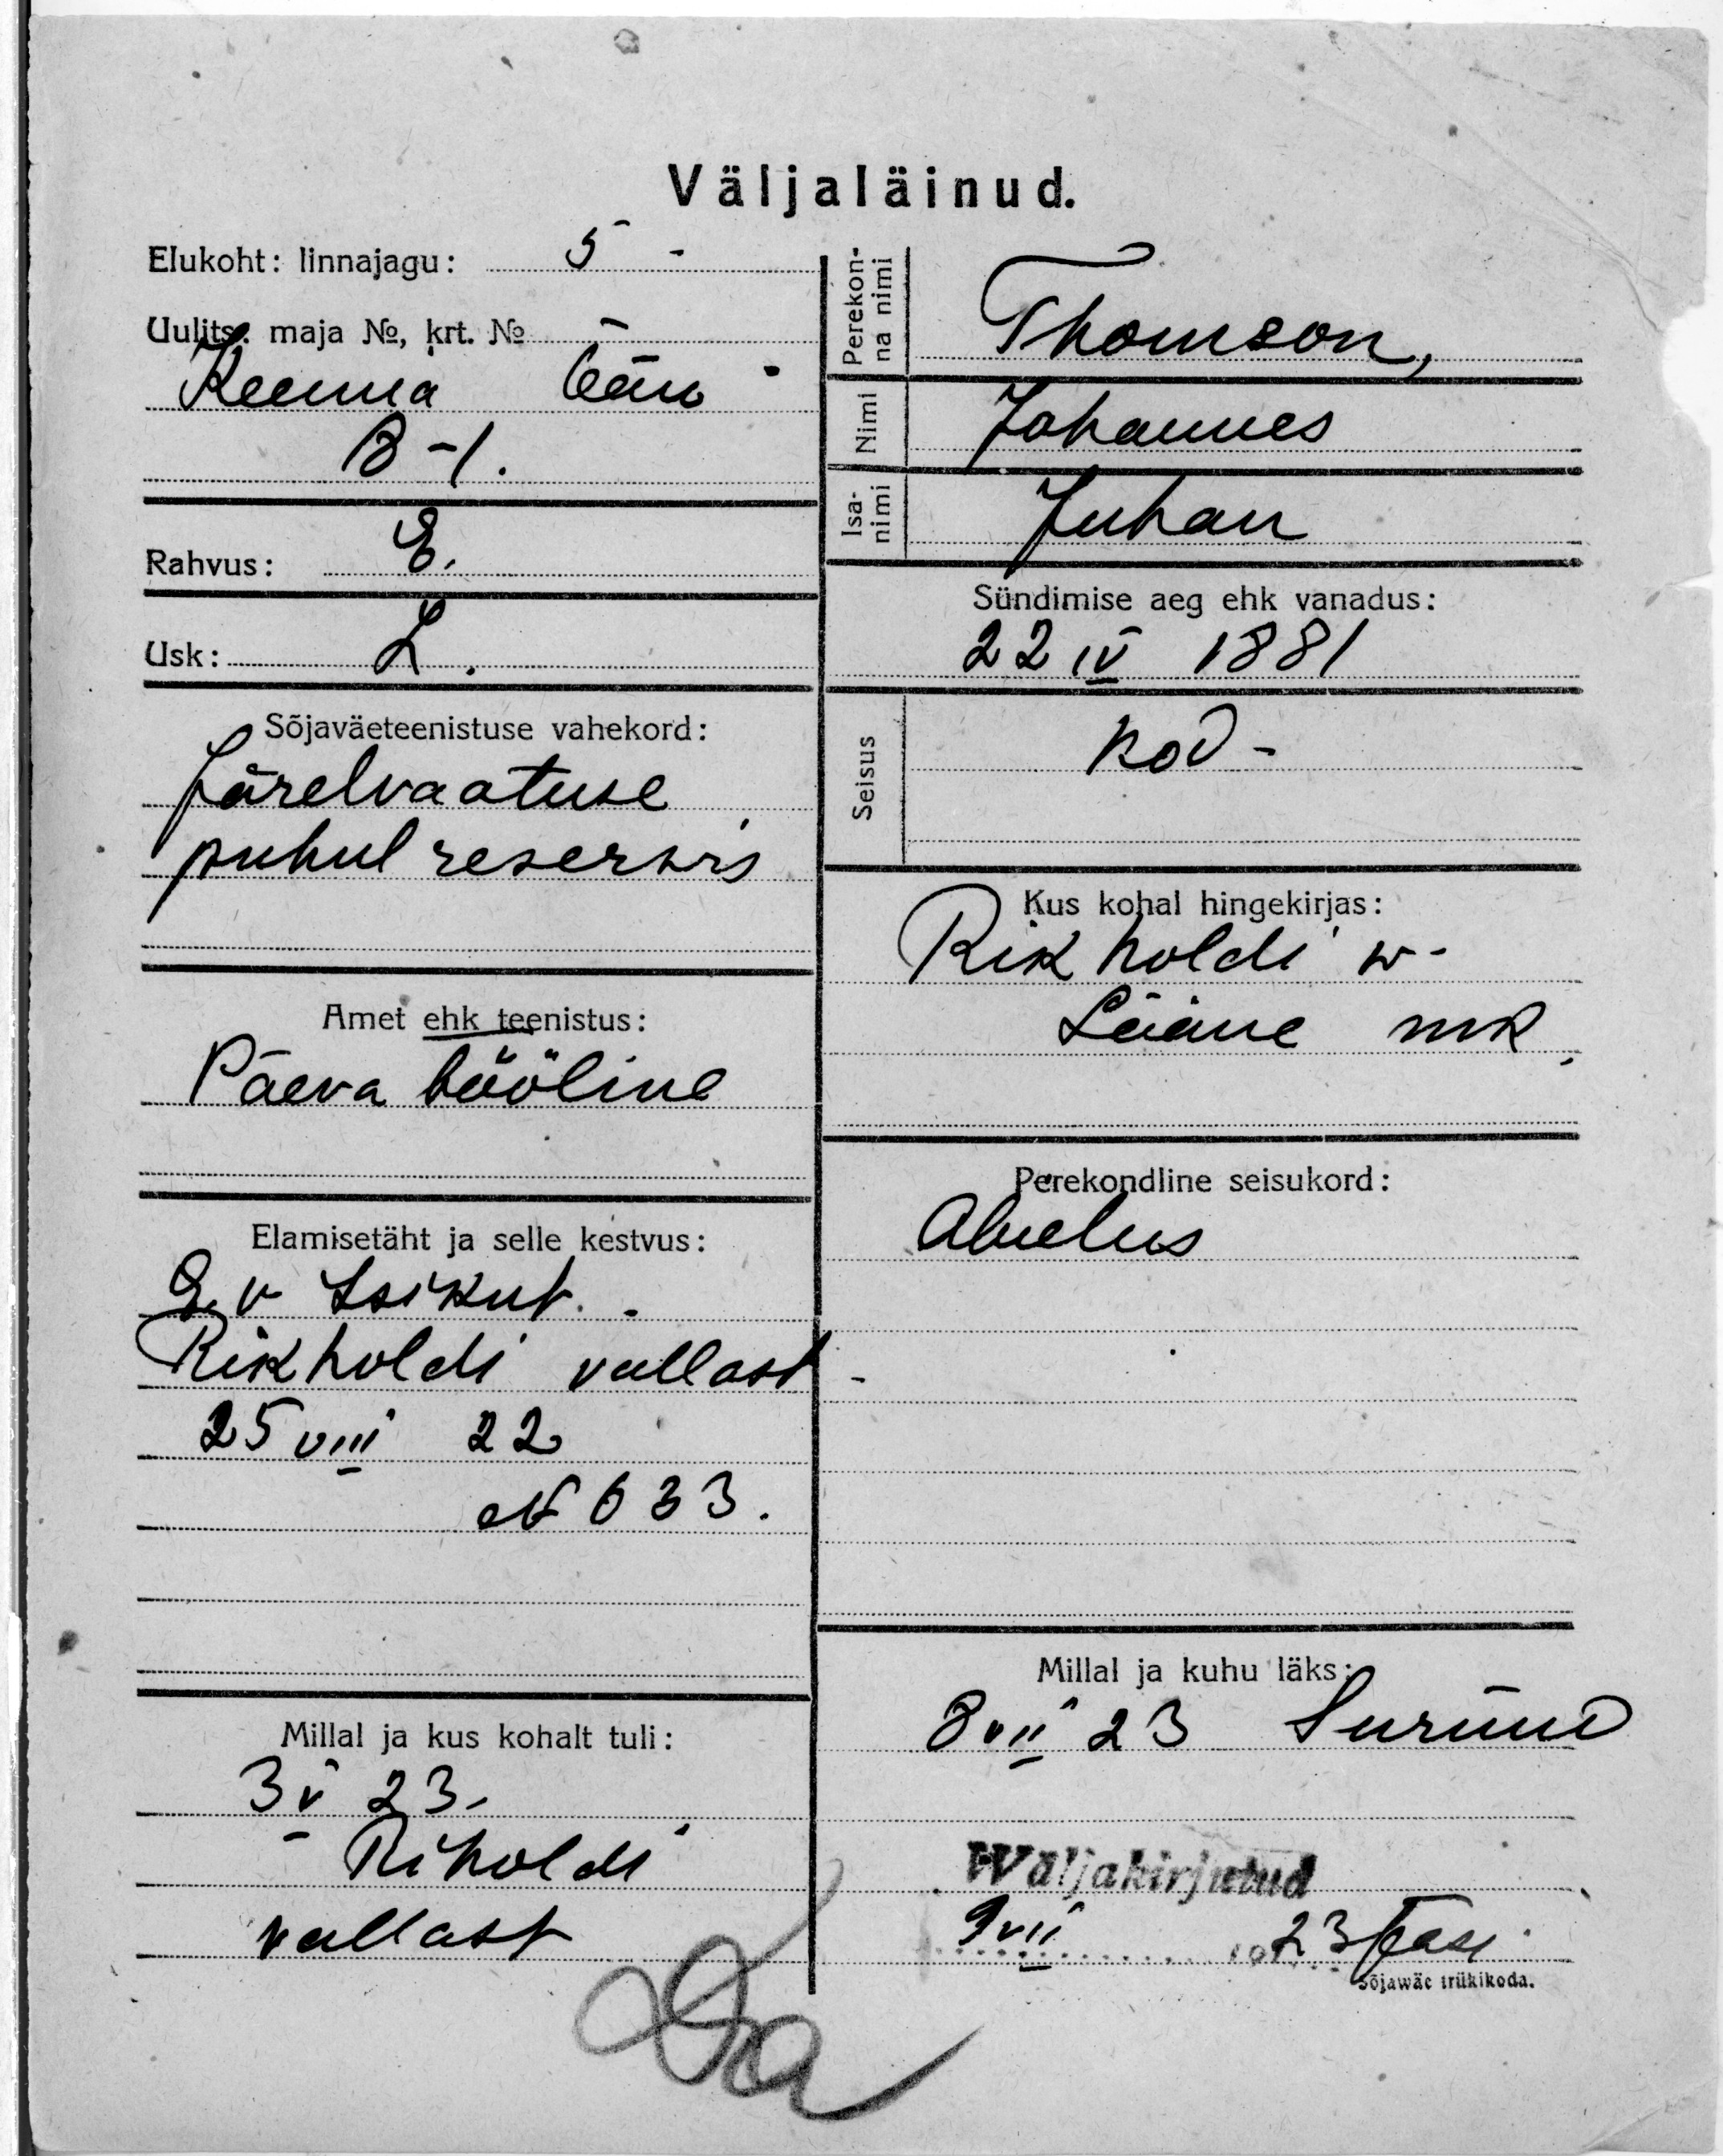 Väljaläinud.
Elukoht: linnajagu: 5 -
Uulits, maja №, krt. №
tän
-1.
Rahvus: E.
Usk: L.
Sõjaväeteenistuse vahekord:
Järelvaatuse
puhul reservis
Amet ehk teenistus:
Päeva tööline
Elamisetäht ja selle kestvus:
E. v Isikut.
Rikholdi vallast -
25 VIII 22
№ 633.
Millal ja kus kohalt tuli:
3 V 23.
Riholdi
vallast
Perekonna nimi
Thomson,
Nimi
Johannes
Isanimi
Juhan
Sündimise aeg ehk vanadus:
22 IV 1881
Seisus
kod -
Kus kohal hingekirjas:
Rikholdi w-
Lääne mk.
Perekondline seisukord:
Abielus
Millal ja kuhu läks:
8 VII 23 Surnud
Wäljakirjutud
9 VII 23
Sõjawäe trükikoda.